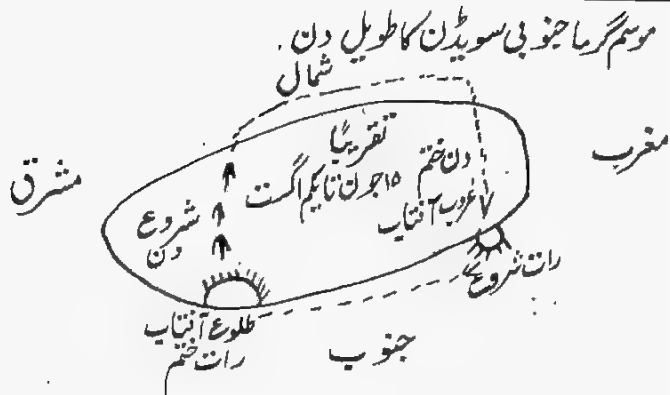 موسم گرما جنوبی سویڈن کا طویل دن .
شمال
مغرب
مشرق
تقریباً
۱۵ جون تا یکم اگست
دن ختم
غروب آفتاب
شروع
دن
رات شروع
طلوع آفتاب
رات ختم
جنوب